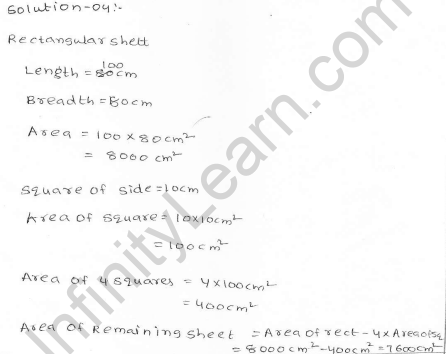 Solution-04:-
Rectangular shett
Length = 100cm
Breadth = 80cm
Area = 100 × 80cm²
= 8000 cm²
Square of side = 10cm
Area of square = 10×10cm²
= 100cm²
Area of 4 squares = 4×100cm²
= 400cm²
Area of Remaining sheet = Area of rect - 4× Area of sq
= 8000cm² - 400cm² = 7600cm²
InfinityLearn.com